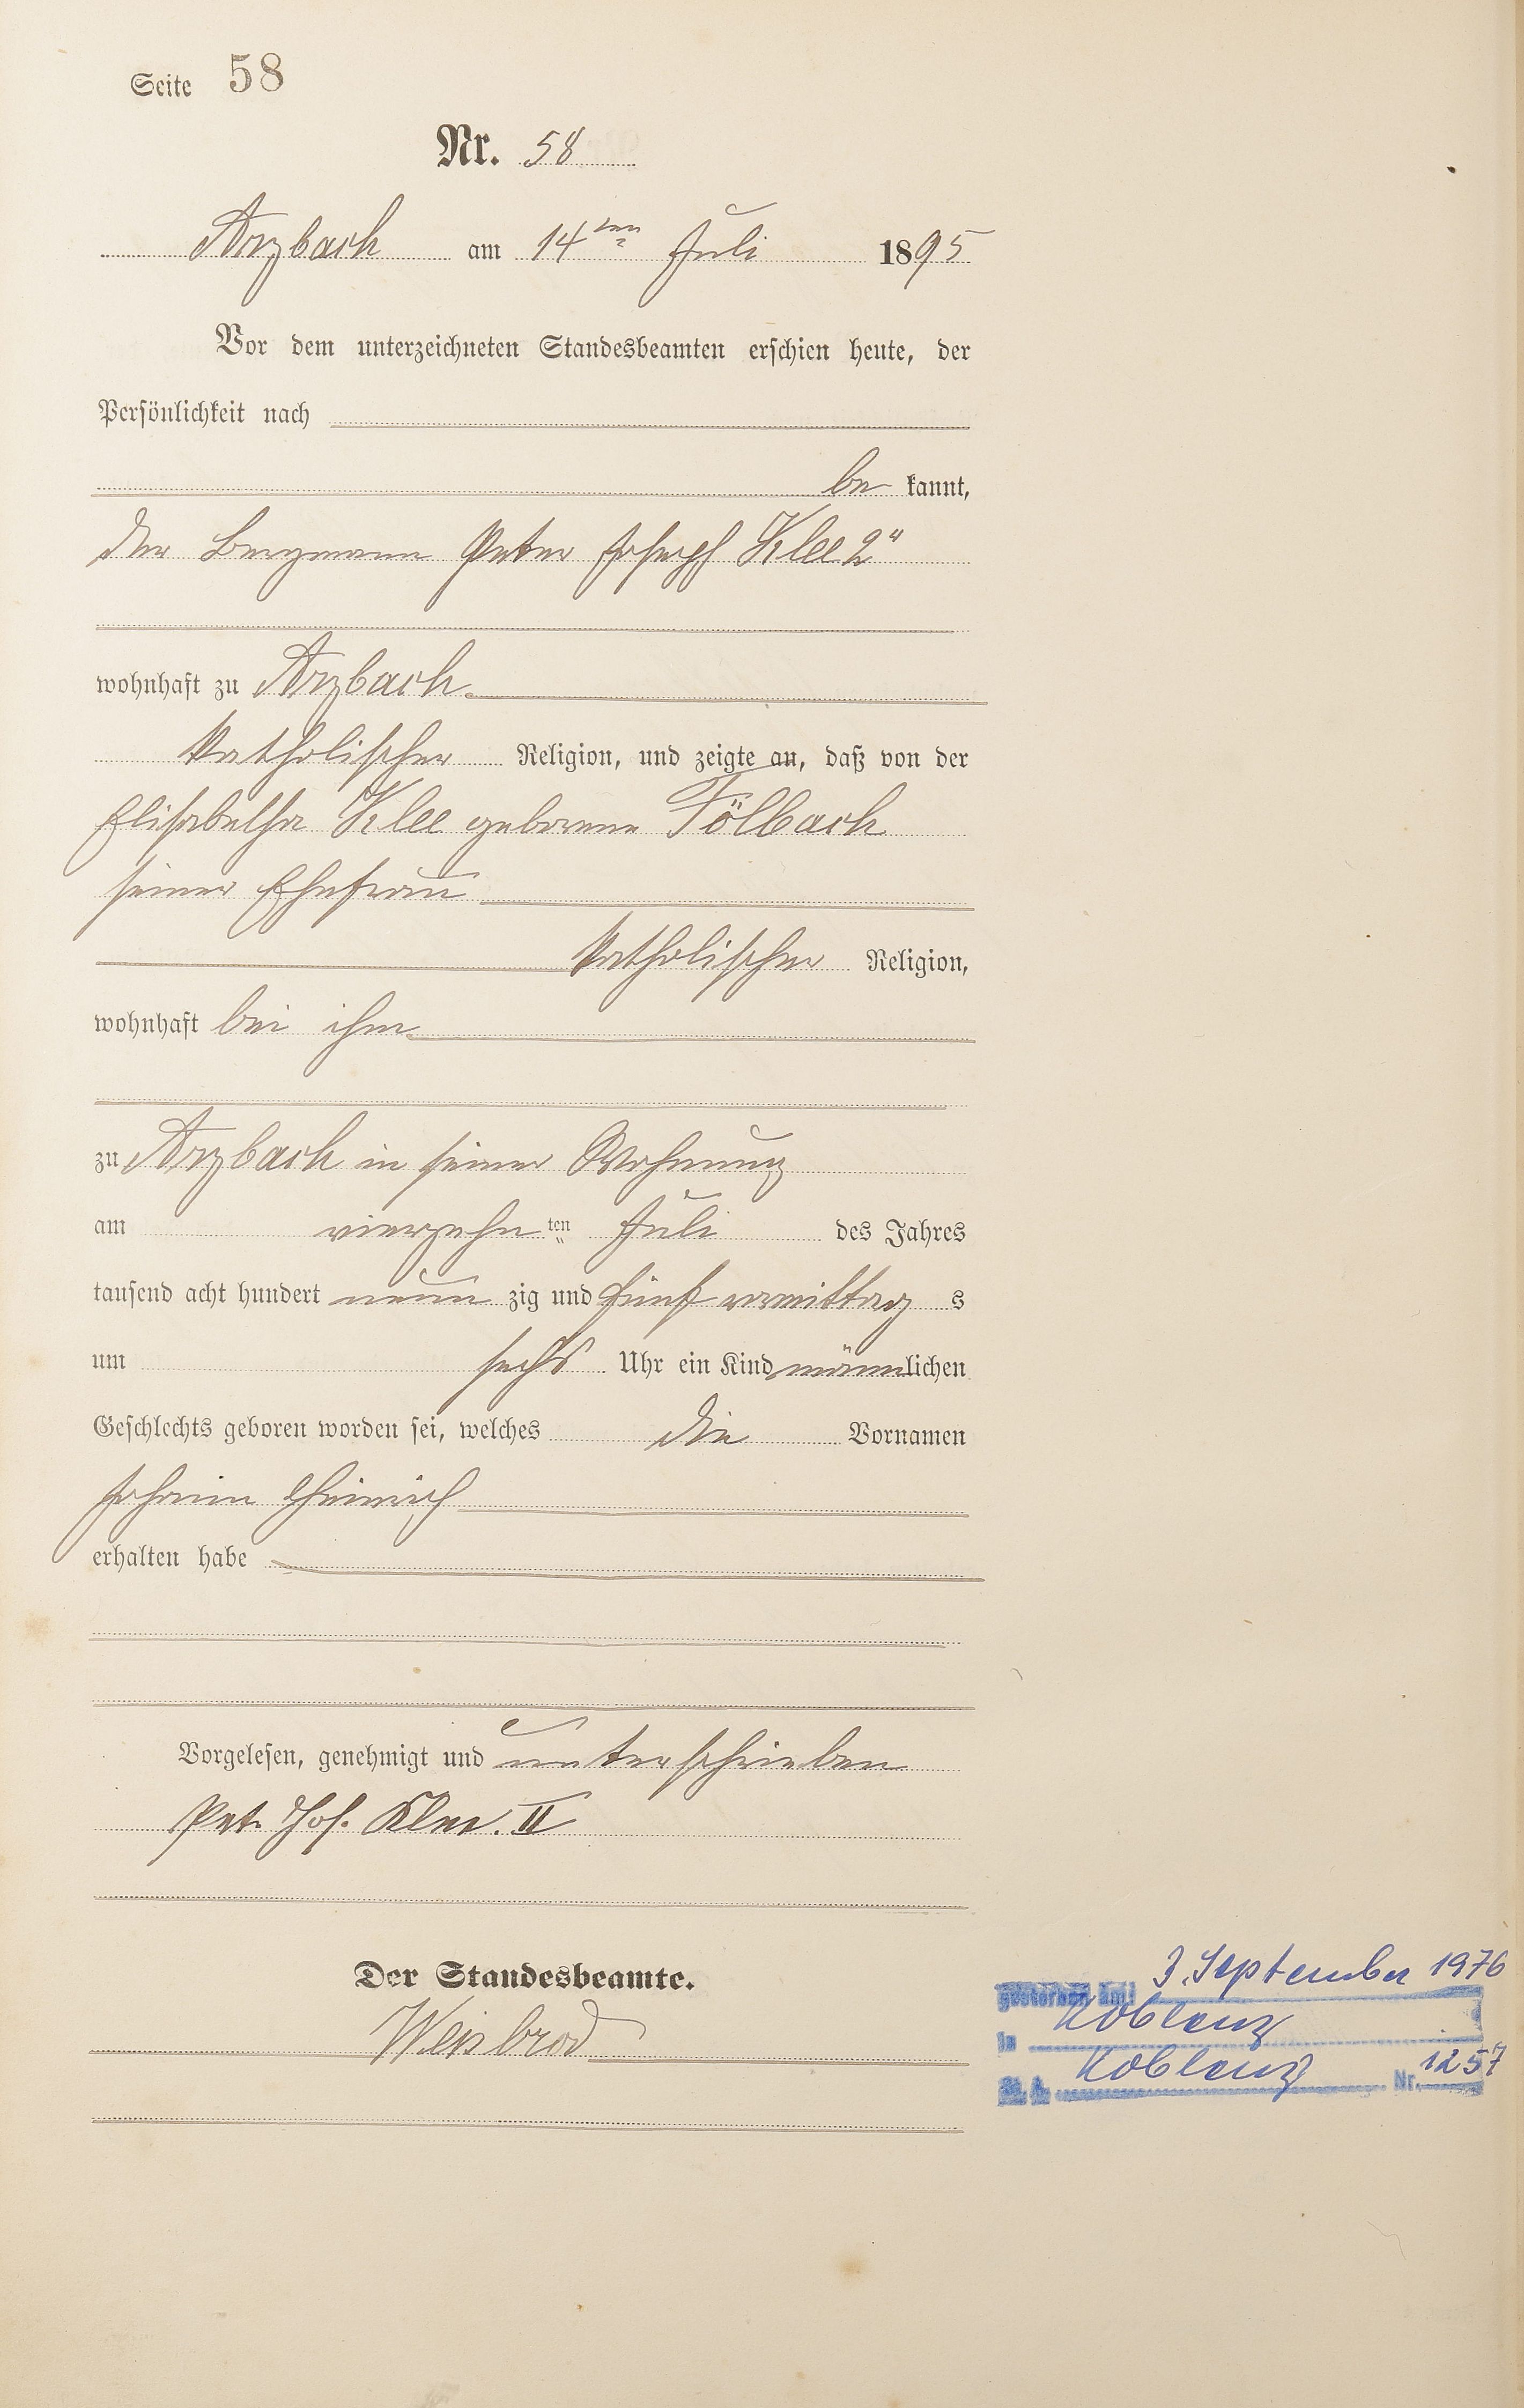 Seite 58
Nr. 58
Arzbach am 14ten Juli 1895
Vor dem unterzeichneten Standesbeamten erschien heute, der
Persönlichkeit nach
be kannt,
der Bergmann Peter Joseph Klee 2"
wohnhaft zu Arzbach
katholischer Religion, und zeigte an, daß von der
Elisabetha Klee geborene Fölbach
seiner Ehefrau
katholischer Religion,
wohnhaft bei ihm
zu Arzbach in seiner Wohnung
am vierzehn ten Juli des Jahres
tausend acht hundert neun zig und fünf vormittag s
um sechs Uhr ein Kind männlichen
Geschlechts geboren worden sei, welches die Vornamen
Johann Heinrich
erhalten habe
Vorgelesen, genehmigt und unterschrieben
Pet. Jos. Klee. II
Der Standesbeamte.
Weisbrod
gestorben am: 3. September 1976
in Koblenz
St. A. Koblenz Nr. 1257